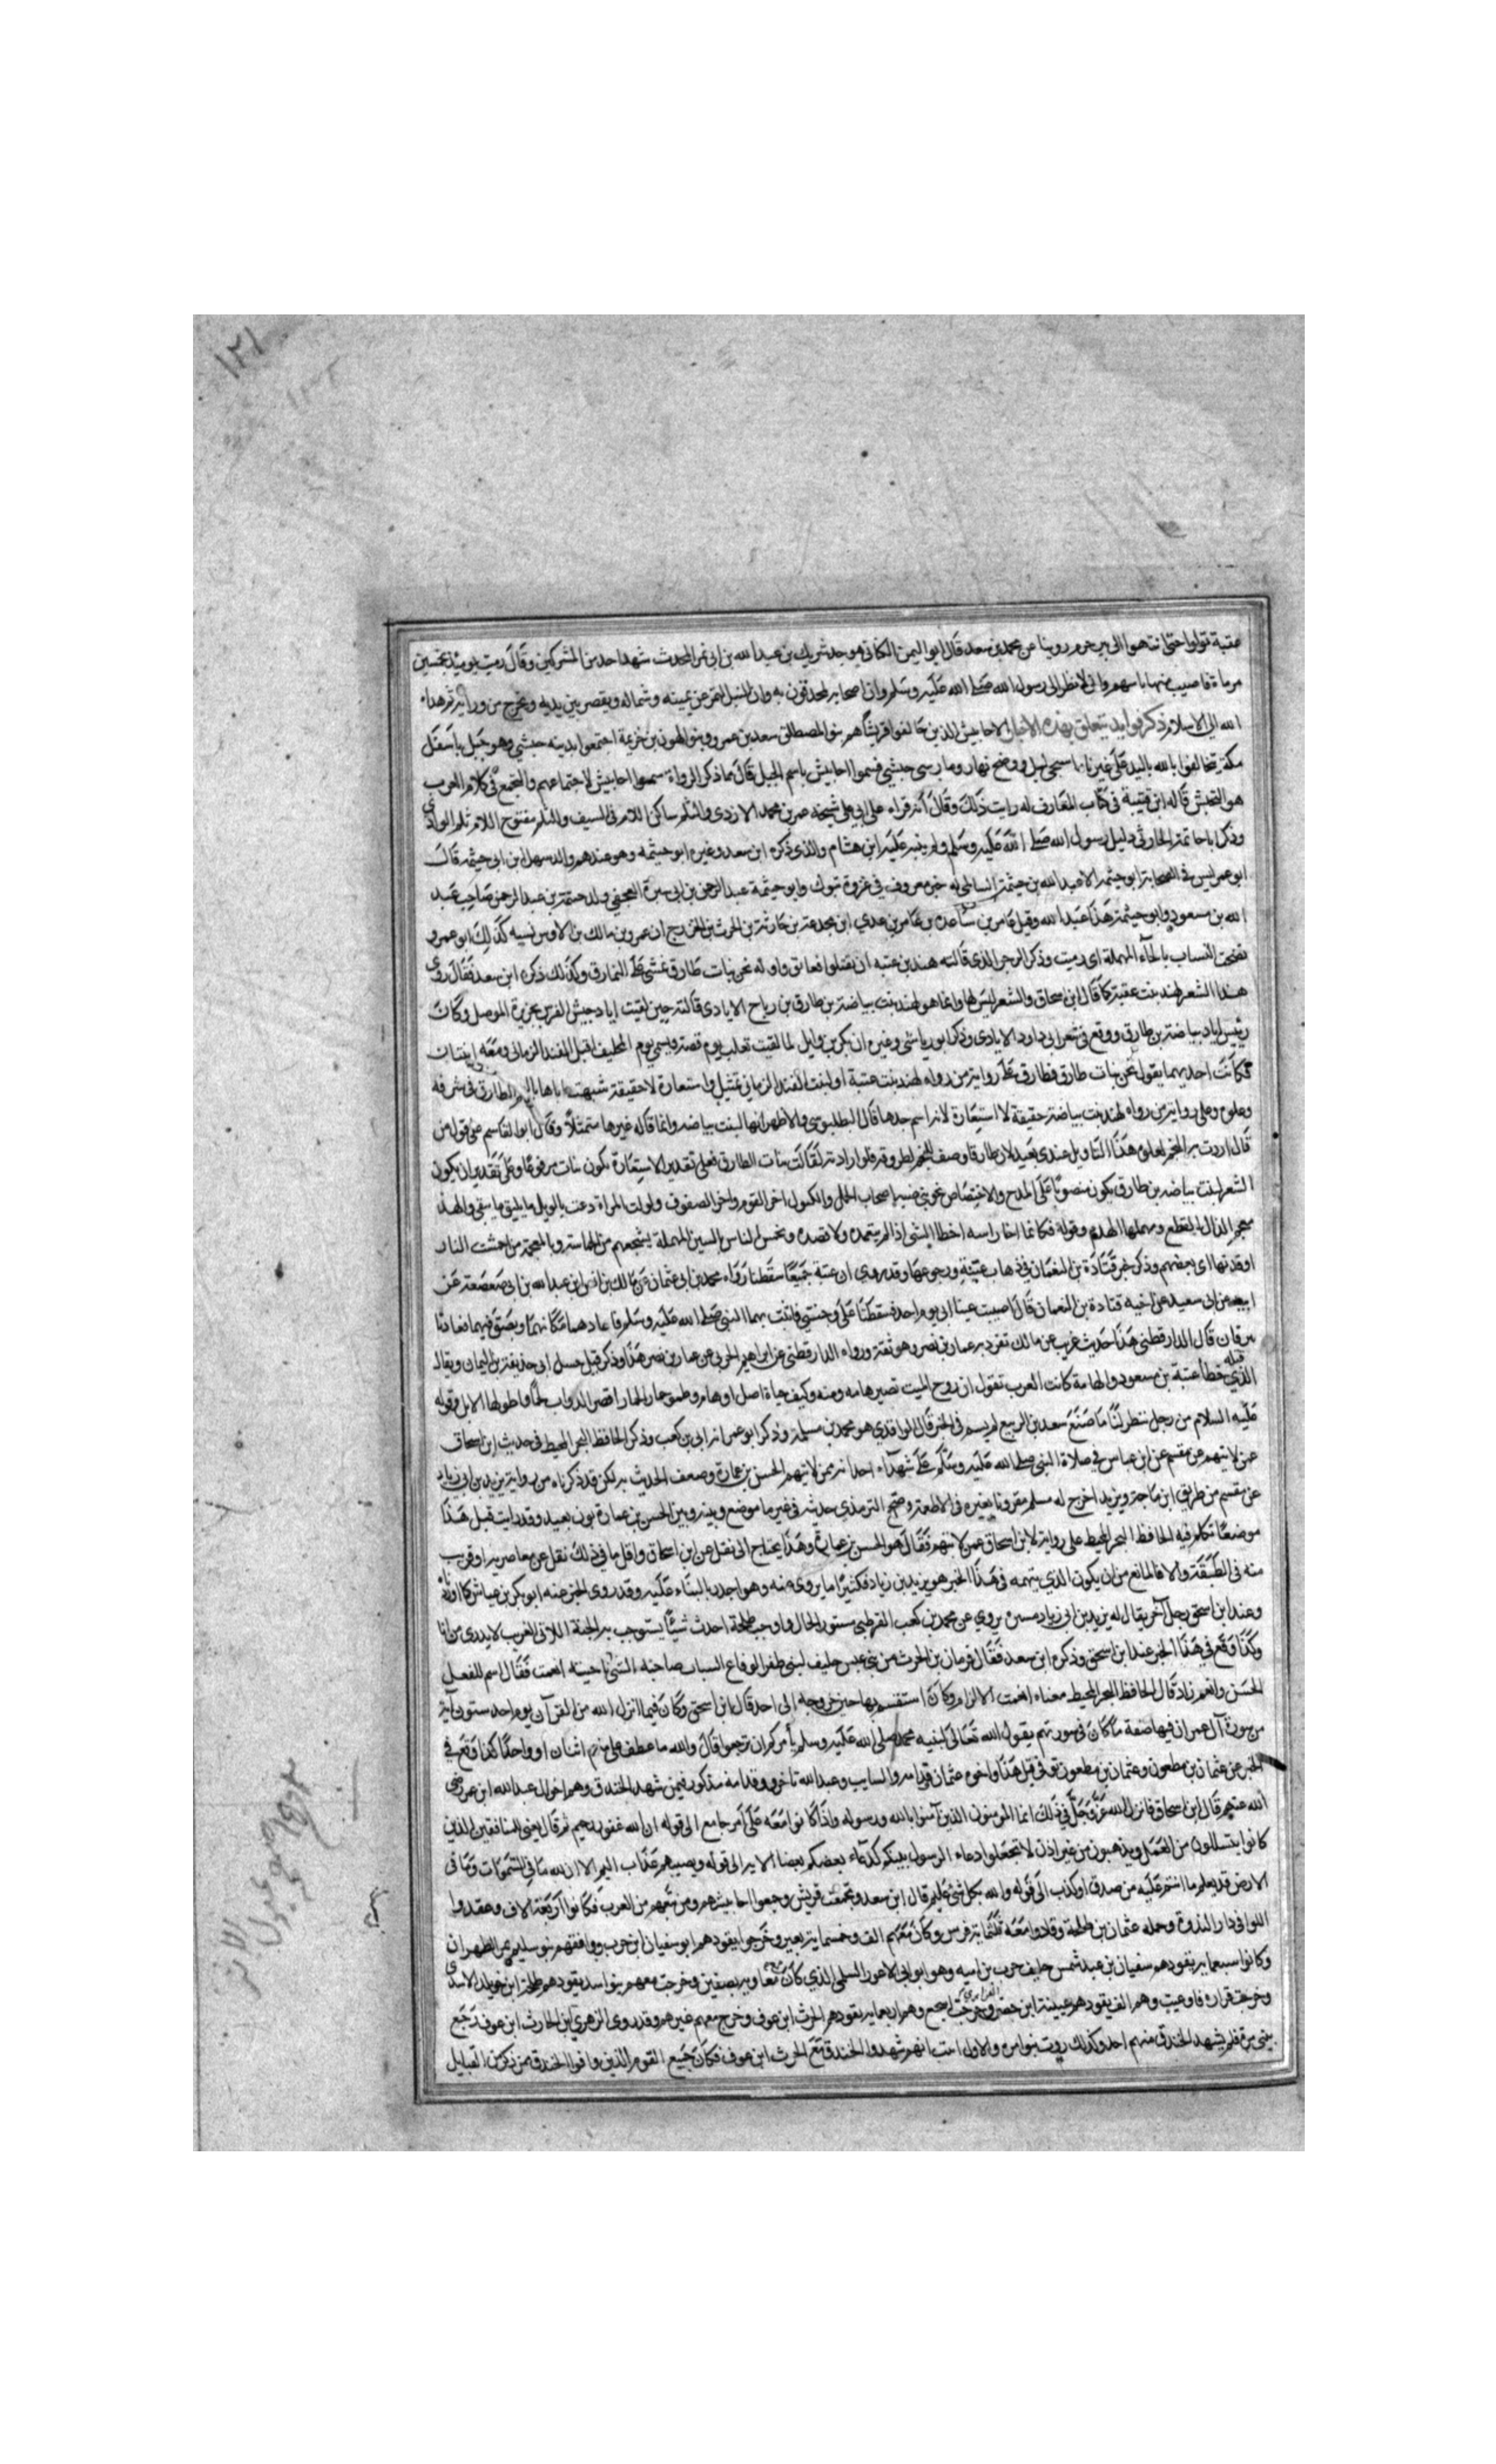 ١٢١
عقبة تولوا حتى انتهوا الى بير جرم روينا عن محمد بن سعد قال ابو اليمن الكناني هو جد شريك بن عبد الله بن ابي نمر المحدث شهد احد من المشركين وقال رميت يوميذ بخمسين
مرماة فاصيب منها باسهم واني لانظر الى رسول الله صلى الله عليه وسلم وان اصحابه لمحدقون به وان النبل لتمر عن يمينه وشماله ويقصر بين يديه ويخرج من ورايه ثم هداه
الله الى الاسلام ذكر فوايد يتعلق بهذه الاخبار الاحابيش الذين حالفوا قريشا هم بنو المصطلق سعد بن عمرو وبنو الهون بن خزيمة اجتمعوا بذنبه حبشي وهو جبل باسفل
مكة تحالفوا بالله باليد على غيرنا ما سجى ليل ووضح نهار وما رسى حبشي فسموا احابيش باسم الجبل قال حماد كر الرواة سموا احابيش لاجتماعهم والتجمع في كلام العرب
هو التحبش قاله ابن قتيبة في كتاب المعارف له رايت ذلك وقال انه قراه على ابي على شيخه عمر بن محمد الازدي والثلم ساكن اللام في السيف والثلم مفتوح اللام ثلم الوادي
وذكر ابا حاتمة الحارثي دليل رسول الله صلى الله عليه وسلم ولم ينبه عليه ابن هشام والذي ذكره ابن سعد وغيره ابو حيثمه وهو عندهم والد سهل ابن ابي حيثمه قال
ابو عمر ليس في الصحابة ابو حيثمه الا عبد الله بن حيثمة السالمي له خبر معروف في غزوة تبوك وابو حيثمة عبد الرحمن بن ابي سبرة الجعفي ولد حيثمة بن عبد الرحمن صاحب عبد
الله بن مسعود وابو حيثمة هذا عبد الله وقيل عامر بن ساعده بن عامر بن عدي ابن مجدعة بن حارثة بن الحرث بن الخزرج ابن عمرو بن مالك بن الاوس نسبه كذلك ابو عمرو
نضحت النساب بالحاء المهملة اي رميت وذكر الرجز الذي قالته هند بن عتبه ان تقبلوا نعانق واوله نحن بنات طارق نمشي على النمارق وكذلك ذكره ابن سعد فقال روى
هذا الشعر لهند بنت عقبة كما قال ابن اسحاق والشعر ليس لها وانما هو لهند بنت بياضة بن طارق بن رباح الايادي قالته حين لقيت اياد جيش الفرس بجزيرة الموصل وكان
رئيس اياد بياضة بن طارق ووقع في شعر ابي داود الايادي وذكر ابو رياشي وغيره ان بكر بن وايل لما لقيت تغلب يوم قصة ويسمى يوم التحليف اقبل الفند الزماني ومعه ابنتان
فكانت احديهما يقول نحن بنات طارق فطارق على رواية من رواه لهند بنت عتبة او لبنت الفند الزماني تمثيل واستعارة لا حقيقة شبهت اباها بالنجم الطارق في شرفه
وعلوه وعلى رواية من رواه لهند بنت بياضة حقيقة لا استعارة لانه اسم جدها قال البطليوسي والاظهر انها لبنت بياضه وانما قاله غيرها متمثلا وقال ابو القاسم عن قوله من
قال اردت به النجم لعلوه هذا التاويل عندي بعيد لان طارقا وصف للنجم لطروقه فلو ارادته لقالت بنات الطارق فعلى تقدير الاستعارة يكون بنات مرفوعا وعلى تقدير ان يكون
الشعر لبنت بياضه بن طارق يكون منصوبا على المدح والاختصاص نحو بني ضبة اصحاب الجمل والكبول اخر القوم واخر الصفوف وولولت المراة دعت بالويل ما يليق ما يبقى والهذ
معجم الذال القطع ومهملها الهدم وقوله فكانما اخطا راسه اخطا الشي اذا لم يتعمده ولا قصده وتحمس الناس بالسين المهملة يشجعهم من الحماسة وبالمعجمة من احمشت النار
اوقدتها اي يغضبهم وذكر خبر قتادة بن النعمان في ذهاب عينه ورجوعها وقد روى ان عينه جميعا سقطنا رواه محمد بن ابي عثمان عن مالك بن انس ابن عبد الله بن ابي صعصعة عن
ابيه عن ابي سعيد عن اخيه قتادة بن النعمان قال اصيبت عينا ابي يوم احد فسقطنا على وجنتي فاتت بهما النبي صلى الله عليه وسلم فاعادهما مكانهما وبصق فيهما فعادتا
تبرقان قال الدارقطني هذا حديث غريب عن مالك تفرد به عمار بن نصر وهو ثقة ورواه الدارقطني عن ابراهيم الحربي عن عمار بن نصر هذا وذكر قتل حسل ابي حذيفة بن اليمان ويقال
الذي قتله خطأ عتبة بن مسعود والهامة كانت العرب تقول ان روح الميت تصير هامه ومنه وكيف حياة اصل اوهام وظمو حار الحمار اقصر الدواب ظمأ واطولها الابل وقوله
عليه السلام من رجل ينظر لنا ما صنع سعد بن الربيع لم يسم في الخبر قال الواقدي هو محمد بن مسلمة وذكر ابو عمر انه ابي بن كعب وذكر الحافظ البحر المحيط في حديث ابن اسحاق
عمن لا يتهم عن مقسم عن ابن عباس في صلاة النبي صلى الله عليه وسلم على شهداء احد انه ممن لا يتهم الحسن بن عمارة وضعف الحديث به لكن قد ذكرناه من رواية يزيد بن ابي زياد
عن مقسم من طريق ابن ماجة ويزيد اخرج له مسلم مقرونا بغيره في الاطعمة وصحح الترمذي حديثه في غير ما موضع وبينه وبين الحسن بن عمارة بون بعيد وقد رايت قبل هذا
موضعا تكلم فيه الحافظ البحر المحيط على رواية لابن اسحاق عمن لا يتهم فقال هو الحسن بن عمارة وهذا يحتاج الى نقل عن ابن اسحاق واقل ما في ذلك نقل عن معاصر يراه وقرب
منه في الطبقة والا فالمانع من ان يكون الذي يتهمه في هذا الخبر هو يزيد بن زياد فكثيرا ما يروي عنه وهو اجدر بالثناء عليه وقد روى الخبر عنه ابو بكر بن عياش كما اوردناه
وعند ابن اسحق رجل آخر يقال له يزيد بن ابي زياد مسره يروي عن محمد بن كعب القرظي مستور الحال واوجب طلحة احدث شيئا يستوجب به الجنة اللاتي الغرب لا يدرى من انا
وكذا وقع في هذا الخبر عند ابن اسحق وذكره ابن سعد فقال فرمان بن الحرث من بني عبس حليف لبني ظفر الوقاع السباب صاحبه الشي ناحيته انعمت فقال اسم للفعل
الحسن وانعم زاد قال الحافظ البحر المحيط معناه انعمت الازلام وكان استقسم بها حين خروجه الى احد قال ابن اسحق وكان فيما انزل الله من القرآن يوم احد ستون آية
من سورة آل عمران فيها صفة ما كان في سورتهم يقول الله تعالى لنبيه محمد صلى الله عليه وسلم
الخبر عن عثمان بن مظعون وعثمان بن مظعون توفي قبل هذا واخوه عثمان قدامه والسايب وعبد الله تاخروا وقدامة مذكور فيمن شهد الخندق وهم اخوال عبد الله ابن عمر رضي
الله عنهم قال ابن اسحاق فانزل الله عز وجل في ذلك انما المومنون الذين آمنوا بالله ورسوله واذا كانوا معه على امر جامع الى قوله ان الله غفور رحيم ثم قال يعني المنافقين الذين
كانوا يتسللون من العمل ويذهبون من غير اذن لا تجعلوا دعاء الرسول بينكم كدعاء بعضكم بعضا الاية الى قوله ويصيبهم عذاب اليم الا ان لله ما في السموات وما في
الارض قد يعلم ما انتم عليه من صدق او كذب الى قوله والله بكل شئ عليم قال ابن سعد وتجمعت قريش وجمعوا احابيشهم ومن تبعهم من العرب فكانوا اربعة الاف وعقدوا
اللوا في دار الندوة وحمله عثمان بن طلحة وقادوا معه ثلثماية فرس وكان معهم الف وخمسماية بعير وخرجوا يقودهم ابو سفيان ابن حرب ووافقهم بنو سليم بمر الظهران
وكانوا سبعماية يقودهم سفيان بن عبد شمس حليف حرب بن اميه وهو ابو ابي الاعور السلمي الذي كان مع معاويه بصفين وخرجت معهم بنو اسد يقودهم طلحة ابن خويلد الاسدي
وخرجت فزاره فاوعبت وهم الف يقودهم عيينة ابن حصن الفزاري وخرجت اشجع وهم اربعماية يقودهم الحرث ابن عوف وخرج معهم غيرهم وقد روى الزهري ان الحارث ابن عوف رجع
ببني مرة فلم يشهد الخندق منهم احد وكذلك روت بنو امره والاول اثبت انهم شهدوا الخندق مع الحرث ابن عوف فكان جميع القوم الذين وافوا الخندق ممن ذكر من القبايل